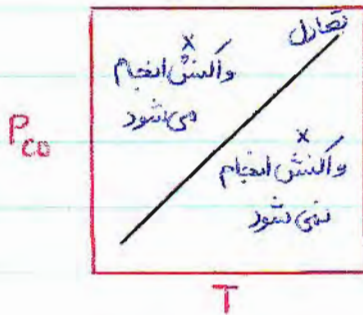 تعادل
x
واکنش انجام
می‌شود
P_CO
x
واکنش انجام
نمی‌شود
T